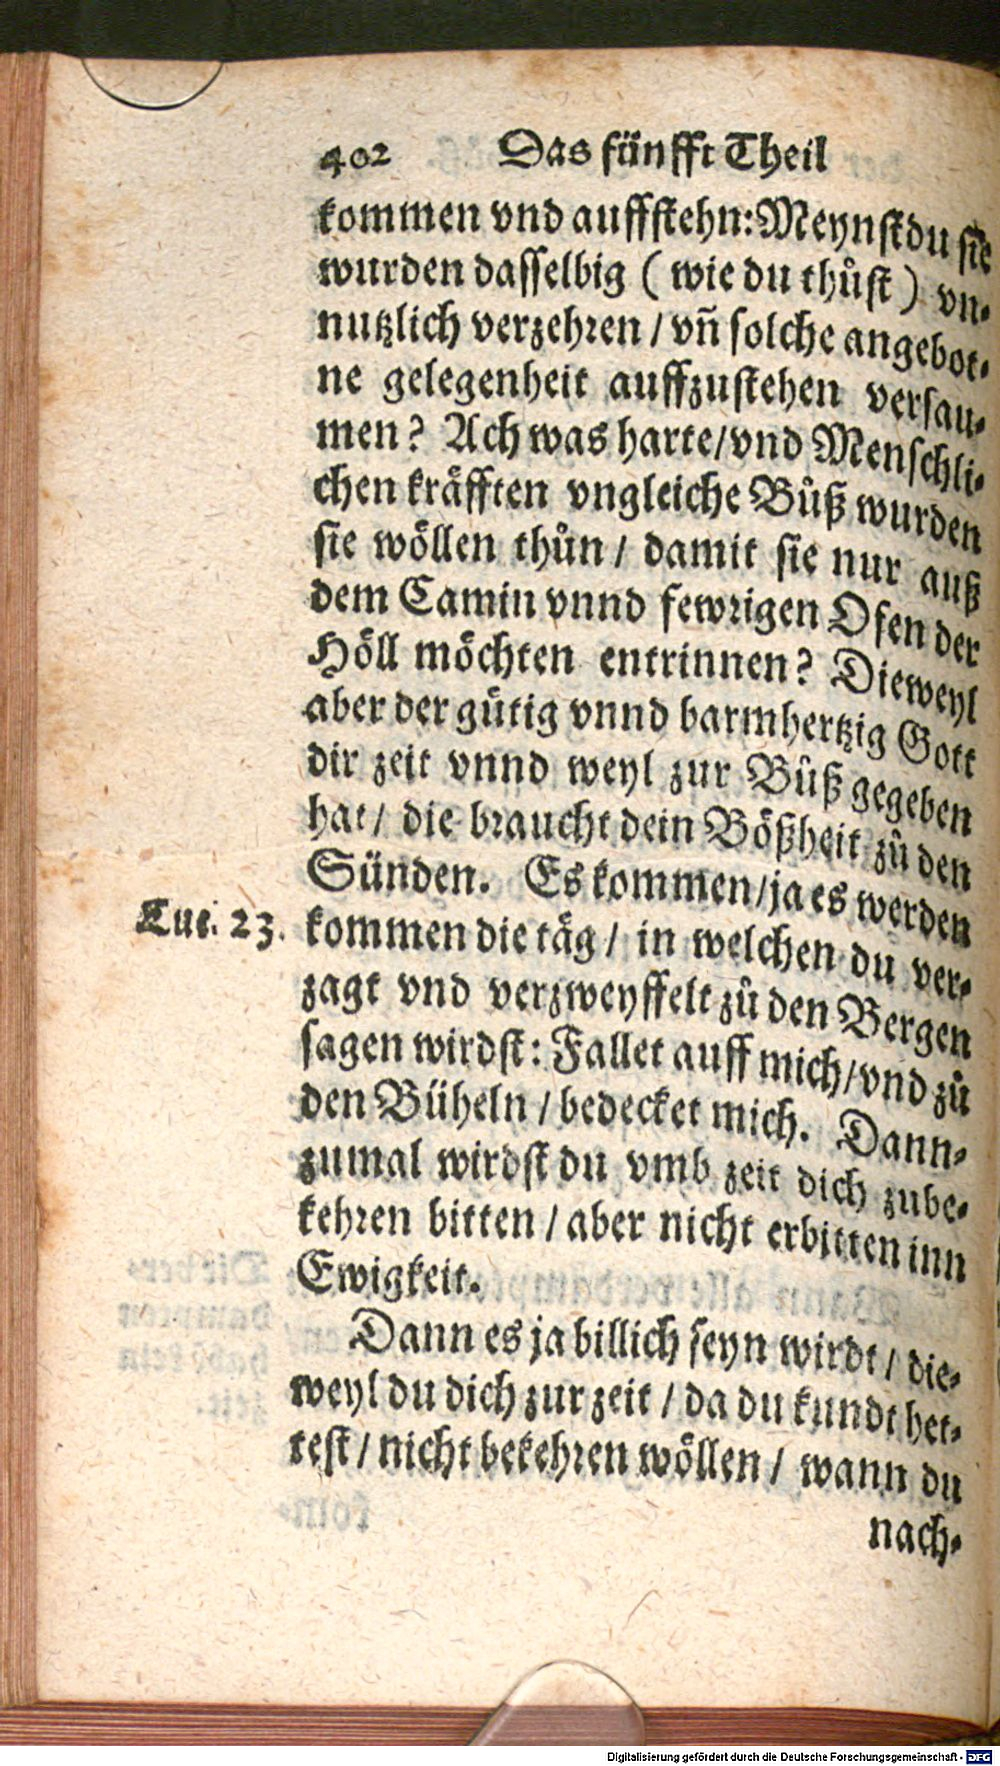 402 Das fünfft Theil
kommen vnd auffstehn: Meynst du sie
wurden dasselbig ( wie du thůst ) vn-
nutzlich verzehren / vñ solche angebot-
ne gelegenheit auffzustehen versau-
men? Ach was harte / vnd Menschli-
chen kräfften vngleiche Bůß wurden
sie wöllen thůn / damit sie nur auß
dem Camin vnnd fewrigen Ofen der
Höll möchten entrinnen? Dieweyl
aber der gütig vnnd barmhertzig Gott
dir zeit vnnd weyl zur Bůß gegeben
hat / die braucht dein Bößheit zů den
Sünden. Es kommen / ja es werden
Luc. 23. kommen die täg / in welchen du ver-
zagt vnd verzweyffelt zů den Bergen
sagen wirdst: Fallet auff mich / vnd zů
den Büheln / bedecket mich. Dann-
zumal wirdst du vmb zeit dich zube-
kehren bitten / aber nicht erbitten inn
Ewigkeit.
Dann es ja billich seyn wirdt / die-
weyl du dich zur zeit / da du kundt het-
test / nicht bekehren wöllen / wann du
nach-
Digitalisierung gefördert durch die Deutsche Forschungsgemeinschaft - DFG